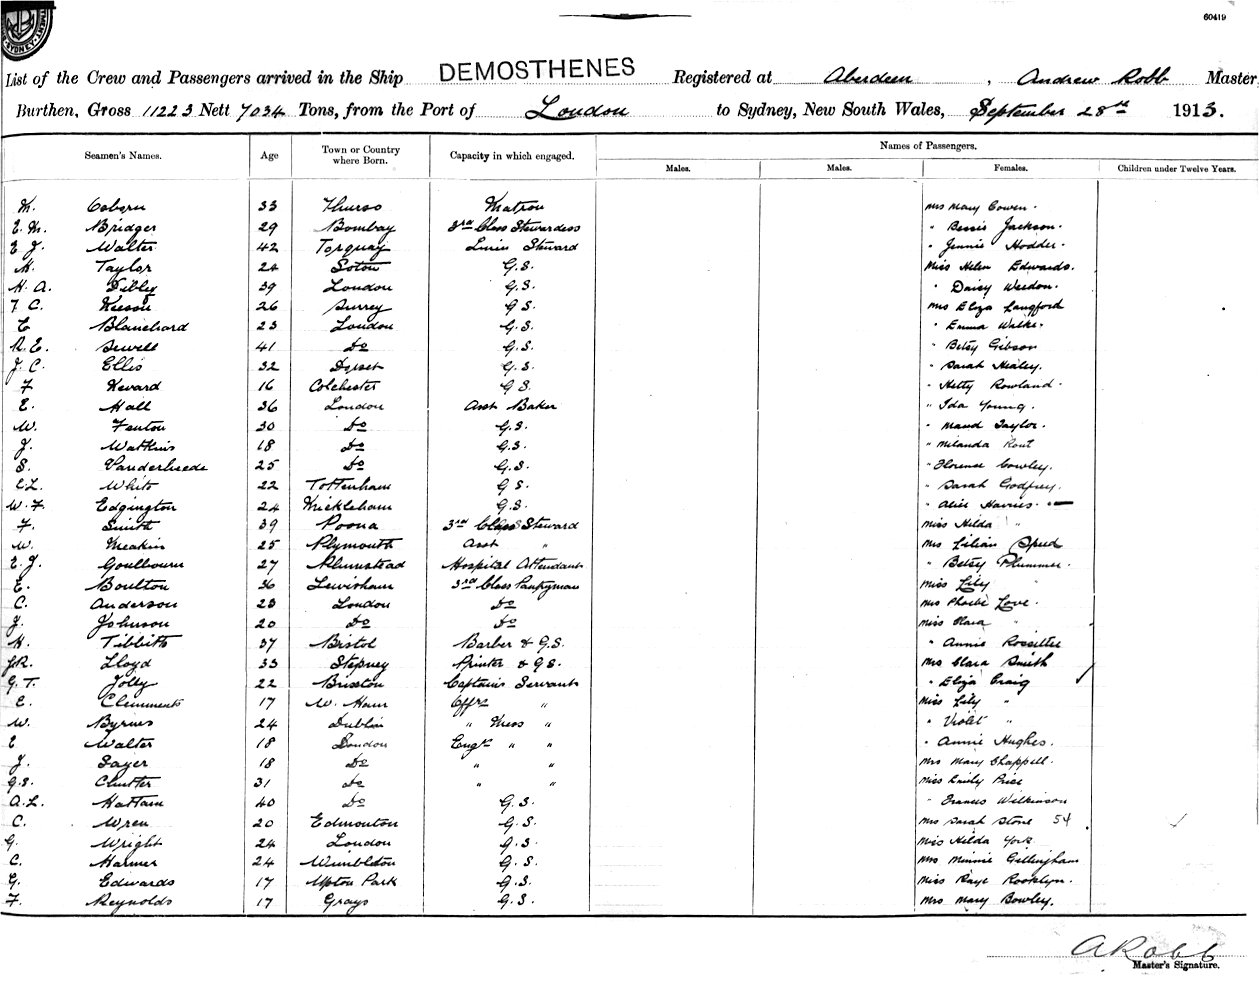 60419
List of the Crew and Passengers arrived in the Ship DEMOSTHENES Registered at Aberdeen, Andrew Robb Master
Burthen, Gross 11223 Nett 7034 Tons, from the Port of London to Sydney, New South Wales, September 28th 1913.
Seamen's Names. Age Town or Country where Born. Capacity in which engaged. Names of Passengers.
Males. Males. Females. Children under Twelve Years.
M. Coborn 33 Thurso Matron Mrs Mary Cowen.
E. M. Bridger 29 Bombay 3rd Class Stewardess " Bessie Jackson.
E J. Walter 42 Torquay Linen Steward " Jennie Hodder.
Taylor 24 Soton G.S. Miss Helen Edwards.
H. A. Tilley 39 London G.S. " Daisy Weedon.
T C. 26 Surrey G S. Mrs Eliza Langford
E Blanchard 23 London G.S. " Emma Walker.
R. E. Sewell 41 Do G.S. " Betsy Gibson
J. C. Ellis 32 Dorset G.S. " Sarah Healey.
F Kevard 16 Colchester G S. " Hetty Rowland.
E. Hall 36 London Asst Baker " Ida Young.
W. Fenton 30 Do G.S. " Maud Taylor.
J. Watkins 18 Do G.S. " Melanda Rout
S. Vanderheede 25 Do G.S. " Florence Cowley.
White 22 Tottenham G S. " Sarah Godfrey.
W. F. Edgington 24 Mickleham G.S. " Alice Harries.
F. Smith 39 Poona 3rd Class Steward Miss Hilda "
W. Meakin 25 Plymouth Asst " Mrs Lilian Speed
E. J. Goulbourn 27 Plumstead Hospital Attendant " Betsy Plummer.
E. Boulton 36 Lewisham 3rd Class Pantryman Miss Lily "
C. Anderson 23 London Do Mrs Phoebe Love.
J. Johnson 20 Do Do Miss Clara "
H. Tibbitts 37 Bristol Barber & G.S. " Annie Rossiter
J.R. Lloyd 33 Stepney Printer & G.S. Mrs Clara Smith
G. T. Jolly 22 Brixton Captains Servant " Eliza Craig
E. Clemments 17 W. Ham Offrs " Miss Lily "
W. Byrnes 24 Dublin " Mess " " Violet "
E Walter 18 London Engrs " " " Annie Hughes.
J. Sayer 18 Do " " Mrs Mary Chappell.
G.S. Clutter 31 Do " " Miss Emily Price
A.L. Hattam 40 Do G.S. " Frances Wilkinson
C. Wren 20 Edmonton G.S. Mrs Sarah Stone 54
G. Wright 24 London G.S. Miss Hilda York
C. Harmer 24 Wimbledon G.S. Mrs Minnie Gillingham
G. Edwards 17 Upton Park G.S. Miss Raye Rooklyn.
F. Reynolds 17 Grays G.S. Mrs Mary Bowley.
A Robb
Master's Signature.